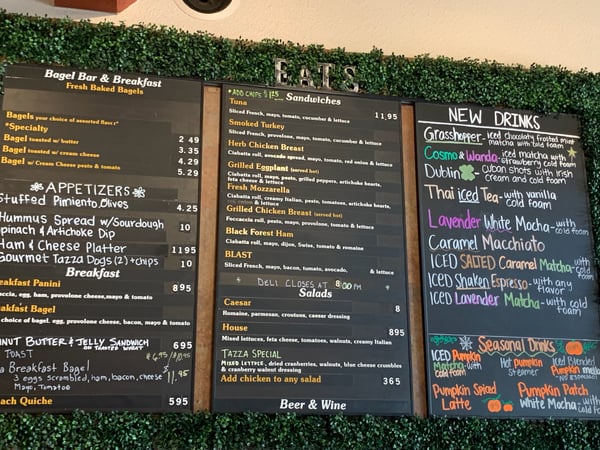 EATS
Bagel Bar & Breakfast
Fresh Baked Bagels
Bagels your choice of assorted flavors*
*Specialty
Bagel toasted w/ butter 2 49
Bagel toasted w/ cream cheese 3.35
Bagel w/ Cream Cheese pesto & tomato 4.29
5.29
APPETIZERS
Stuffed Pimiento Olives 4.25
Hummus Spread w/Sourdough 10
Spinach & Artichoke Dip
Ham & Cheese Platter 1195
Gourmet Tazza Dogs (2)+chips 10
Breakfast
eakfast Panini 895
accia, egg, ham, provolone cheese, mayo & tomato
eakfast Bagel
choice of bagel, egg, provolone cheese, bacon, mayo & tomato
NUT BUTTER & JELLY SANDWICH 695
ON TOASTED WHEAT
TOAST
a Breakfast Bagel
3 eggs scrambled, ham, bacon, cheese 11.95
Mayo, Tomatoe
ach Quiche 595
*ADD CHIPS $1.25
Sandwiches
Tuna 11,95
Sliced French, mayo, tomato, cucumber & lettuce
Smoked Turkey
Sliced French, provolone, mayo, tomato, cucumber & lettuce
Herb Chicken Breast
Ciabatta roll, avocado spread, mayo, tomato, red onion & lettuce
Grilled Eggplant (served hot)
Ciabatta roll, mayo, pesto, grilled peppers, artichoke hearts,
feta cheese & lettuce
Fresh Mozzarella
Ciabatta roll, creamy Italian, pesto, tomatoes, artichoke hearts,
& lettuce
Grilled Chicken Breast (served hot)
Foccaccia roll, pesto, mayo, provolone, tomato & lettuce
Black Forest Ham
Ciabatta roll, mayo, dijon, Swiss, tomato & romaine
BLAST
Sliced French, mayo, bacon, tomato, avocado, & lettuce
DELI CLOSES AT 8:00 PM
Salads
Caesar 8
Romaine, parmesan, croutons, caesar dressing
House 895
Mixed lettuces, feta cheese, tomatoes, walnuts, creamy Italian
TAZZA SPECIAL
Mixed lettuce, dried cranberries, walnuts, blue cheese crumbles
& cranberry walnut dressing
Add chicken to any salad 365
Beer & Wine
NEW DRINKS
Grasshopper- iced chocolaty frosted mint
matcha with cold foam
Cosmo & Wanda- iced matcha with
strawberry cold foam
Dublin cuban shots with irish
cream and cold foam
Thai iced Tea- with vanilla
cold foam
Lavender White Mocha- with
cold foam
Caramel Macchiato
ICED SALTED Caramel Matcha- with
cold foam
ICED Shaken Espresso- with any
flavor
ICED Lavender Matcha- with cold
foam
Seasonal Drinks
ICED Pumpkin
Matcha- with
cold foam
Hot pumpkin
Steamer
Iced Blended
Pumpkin
NO ESPRESSO!
Pumpkin Spiced
Latte
Pumpkin Patch
White Mocha- with
cold foam